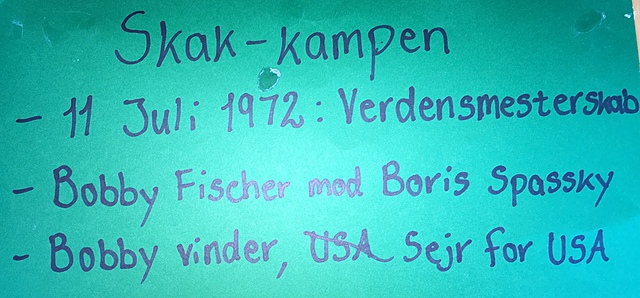 Skak-kampen
- 11 Juli 1972: Verdensmesterskab
- Bobby Fischer mod Boris Spassky
- Bobby vinder, USA Sejr for USA